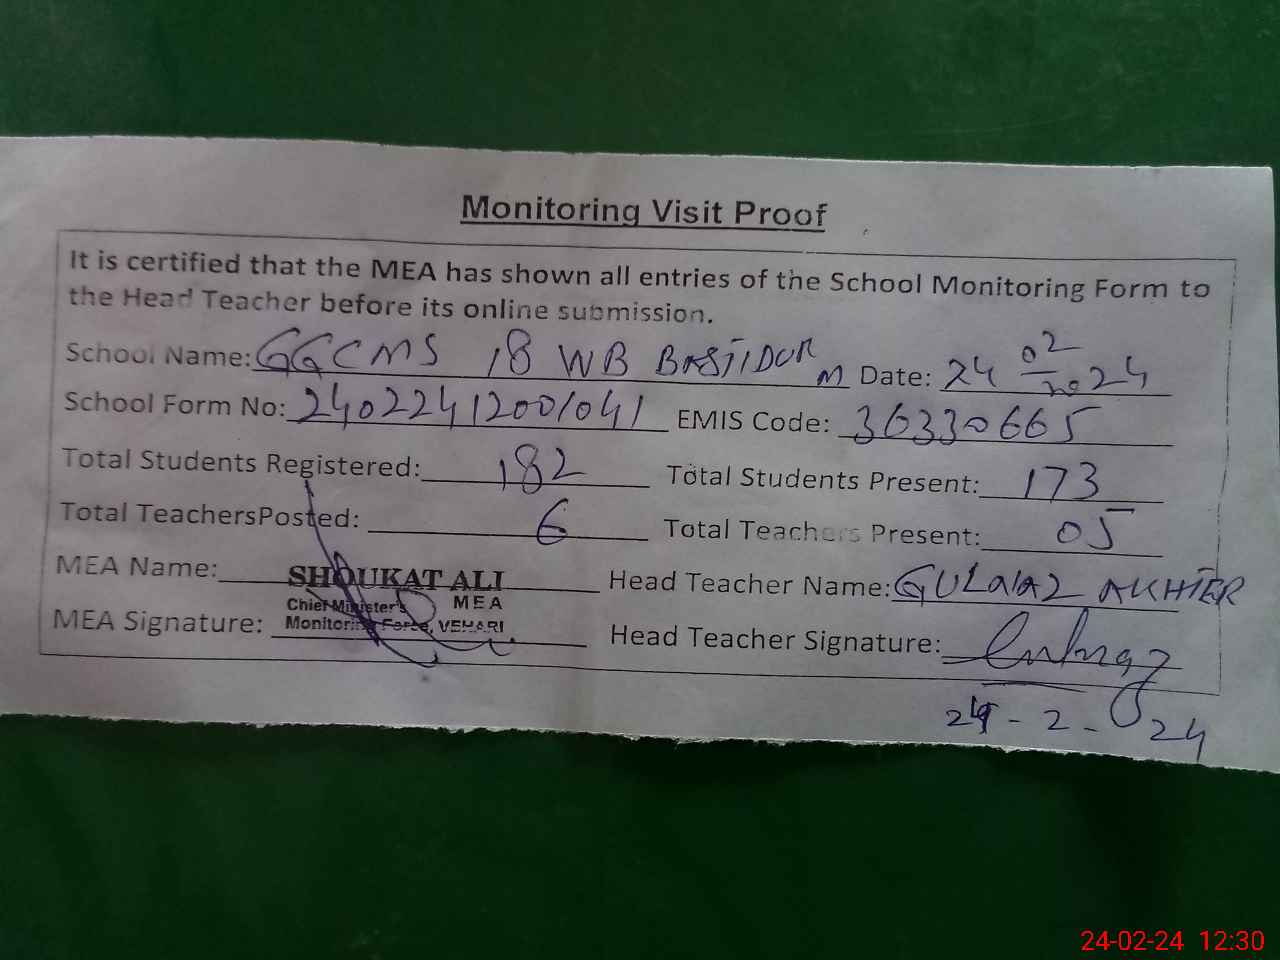 Monitoring Visit Proof
It is certified that the MEA has shown all entries of the School Monitoring Form to
the Head Teacher before its online submission.
School Name: GGCMS 18 WB BASTIDUR M Date: 24 02 2024
School Form No: 24022412001041 EMIS Code: 36330665
Total Students Registered: 182 Total Students Present: 173
Total TeachersPosted: 6 Total Teachers Present: 05
MEA Name: SHOUKAT ALI Head Teacher Name: AKHTER
Chief Minister's MEA
Monitoring Force, VEHARI
MEA Signature: Head Teacher Signature:
24-2-24
24-02-24 12:30